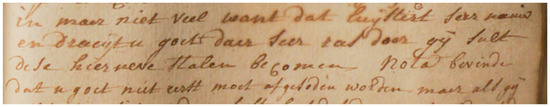 in maer niet veel want dat luijstert seer nauw
en Draeijt u goet daer seer ras door gij sult
dese hier nevens stalen becomen Nota bevinde
dat u goet niet eerst moet afgesoden worden maer als gij